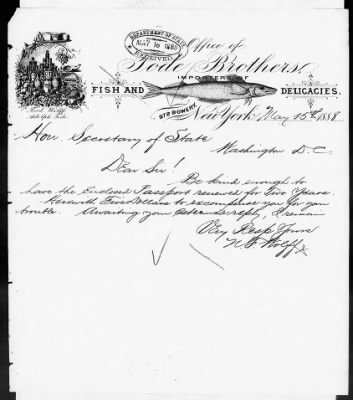 DEPARTMENT OF STATE
MAY 16 1888
RECEIVED
Office of
Tode Brothers,
IMPORTERS OF
FISH AND DELICACIES.
BOWERY.
New York May 15th 1888
Hon Secretary of State
Washington D. C
Dear Sir!
Be kind enough to
have the Enclosed Passport renewed for two Years.
herewith Five Dollars to recompense you for your
trouble. Awaiting your esteemed reply, I remain
Very Resp. Yours
Wolff